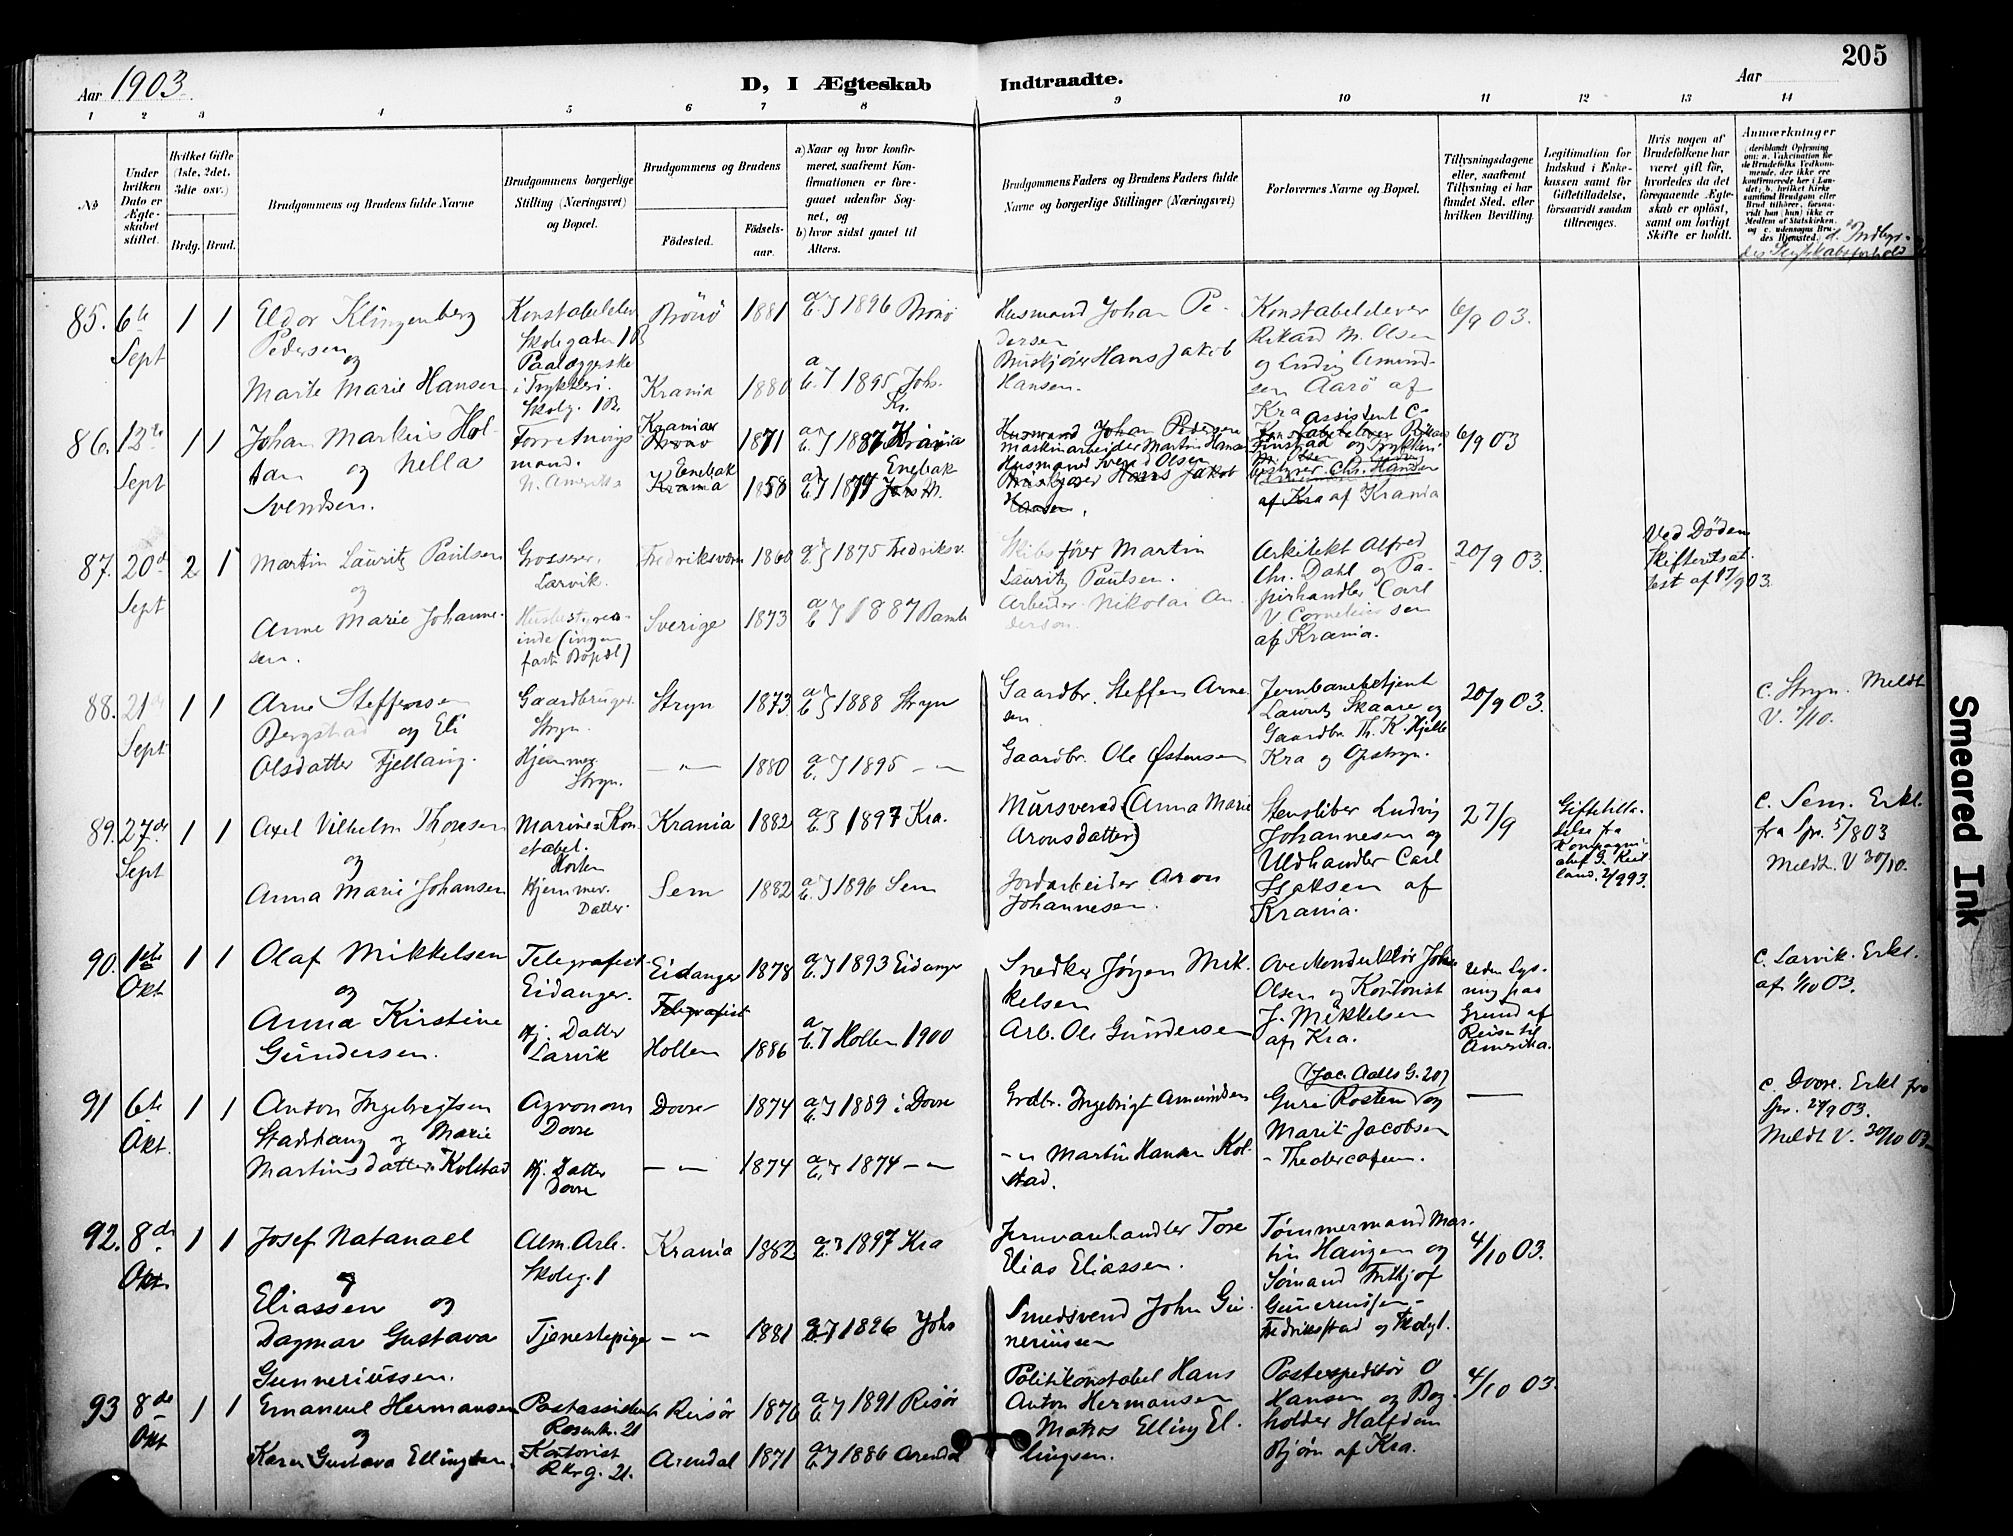 205
Aar 1903.
D, I Ægteskab Indtraadte.
Aar
1 2 3 4 5 6 7 8 9 10 11 12 13 14
No
Under hvilken Dato er Ægteskabet stiftet.
Hvilket Gifte (1ste, 2det, 3die osv.)
Brdg. Brud.
Brudgommens og Brudens fulde Navne
Brudgommens borgerlige Stilling (Næringsvei) og Bopæl.
Brudgommens og Brudens
Fødested.
Fødselsaar.
a) Naar og hvor konfirmeret, saafremt Konfirmationen er foregaaet udenfor Sognet, og
b) hvor sidst gaaet til Alters.
Brudgommens Faders og Brudens Faders fulde Navne og borgerlige Stillinger (Næringsvei)
Forlovernes Navne og Bopæl.
Tillysningsdagene eller, saafremt Tillysning ei har fundet Sted, efter hvilken Bevilling.
Legitimation for Indskud i Enkekassen samt for Giftetilladelse, forsaavidt saadan tiltrænges.
Hvis nogen af Brudefolkene har været gift før, hvorledes da det foregaaende Ægteskab er opløst, samt om lovligt Skifte er holdt.
Anmærkninger (deriblandt Oplysning om: a. Vakcination for de Brudefolks Vedkommende, der ikke ere konfirmerede her i Landet; b. hvilket Kirkesamfund Brudgom eller Brud tilhører, forsaavidt han (hun) ikke er Medlem af Statskirken, og c. udensogns Brudes Hjemsted.
85. 6te Sept 1 1
Eldor Klingenberg
Pedersen
og
Marte Marie Hansen
Konstabelelev
Skolegaten 1 B
Paalæggerske
i Trykkeri.
Skolg. 1 B.
Brönö 1881
1896 Brönö
Krania 1880
1895 Johs. Kr.
Husmand Johan Pedersen
Hans Jakob
Hansen.
Konstabelelever
Rikard M. Olsen
og Ludvig Amundsen
Aarö af
Kra
6/9 03.
86. 12te Sept 1 1
Johan Markus Holtan
og Nella
Svendsen.
Forretningsmand.
N. Amerika
Krania 1871
1887 Krania
Enebak 1858
1874 Enebak
Maskinarbeider Martin Hans
Husmand Svend Olsen
Assistent C.
Finstad og Trykkeribestyrer Chr. Hansen
af Krania
6/9 03
87. 20de Sept 2 1
Martin Lauritz Paulsen
og
Anne Marie Johannesen.
Grosserer,
Larvik.
Husbestyrerinde (ingen
fast Bopæl)
Fredriksværn 1860
1875 Fredriksv.
Sverige 1873
1887 Bamle
Skibsfører Martin
Lauritz Paulsen.
Arbeider Nikolai Anderson.
Arkitekt Alfred
Chr. Dahl og Papirhandler Carl
V. Corneliussen
af Krania.
20/9 03.
Ved Døden
Skifteretsattest af 17/9 03.
88. 21de Sept 1 1
Arne Steffensen
Bergstad og Eli
Olsdatter Fjellaug.
Gaardbruger.
Stryn.
Hjemmev.
Stryn.
Stryn 1873
1888 Stryn
— „ — 1880
1895 — „ —
Gaardbr. Steffen Arnesen
Gaardbr. Ole Østensen
Jernbanebetjent
Lauritz Skaare og
Gaardbr. Th. K. Hjelle
Kra og Opstryn.
20/9 03.
C. Stryn. Meldt
V. 1/10.
89. 27de Sept 1 1
Axel Vilhelm Thoresen
og
Anna Marie Johansen
Marine Konstabel.
Horten
Hjemmev.
Datter.
Krania 1882
1897 Kra.
Sem 1882
1896 Sem
Mursvend (Anna Marie
Aronsdatter)
Jordarbeider Aron
Johannesen.
Stensliber Ludvig
Johannesen og
Uldhandler Carl
Isaksen af
Krania.
27/9
Giftetilladelse fra
C. Sem. Erkl.
fra Spr. 5/8 03
Meldt. V 30/10.
90. 1ste Okt 1 1
Olaf Mikkelsen
og
Anna Kirstine
Gundersen.
Telegrafist
Eidanger.
Hj. Datter
Larvik
Eidanger 1878
1893 Eidanger
Telegrafist
Hollen 1886
Hollen 1900
Snedker Jörgen Mikkelsen
Arb. Ole Gundersen
Olsen og Kontorist
J. Mikkelsen
af Kra.
uden Lysning paa
Grund af
Reise til
Amerika.
C. Larvik. Erkl.
af 1/10 03.
91 6te Okt. 1 1
Anton Ingebrigtsen
Stadshaug og Marie
Martinsdatter Kolstad
Agronom
Dovre
Hj. Datter
Dovre
Dovre 1874
1889 i Dovre
— „ — 1874
1874 — „ —
Grdbr. Ingebrigt Amundsen
— „ Martin Hansen Kolstad.
(Jac. Aalls G. 20)
Guri Rosten og
Marit Jacobsen
- Theatercafeen.
—
C. Dovre. Erkl fra
Spr. 24/9 03.
Meldt V. 30/10 03.
92. 8de Okt. 1 1
Josef Natanael
Eliassen og
Dagmar Gustava
Gunneriussen.
Alm. Arb.
Skoleg. 1
Tjenestepige
Krania 1882
1897 Kra
— „ 1881
1896 Johs
Jernvarehandler Tore
Elias Eliassen.
Smedsvend John Guneriussen
Tømmermand Martin Haugen og
Sømand Fritjof
Guneriussen -
Fredriksstad og
4/10 03.
93 8de Okt 1 1
Emanuel Hermansen
og
Karen Gustava Ellingsen.
Postassistent
Rosenk. 21
Kontorist
Rkr g. 21.
Risör 1876
1891 Risör
Arendal 1871
1886 Arendal
Politikonstabel Hans
Anton Hermansen
Matros Elling Ellingsen.
Postexpeditør O
Hansen og Bogholder Halfdan
Bjørn af Kra.
4/10 03.
Smeared Ink